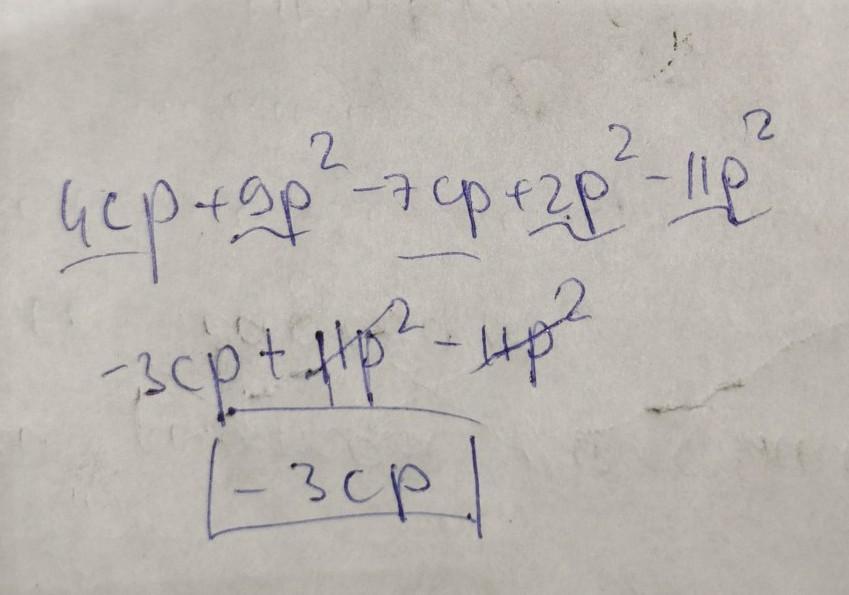 4cp+9p²-7cp+2p²-11p²
-3cp+11p²-11p²
-3cp